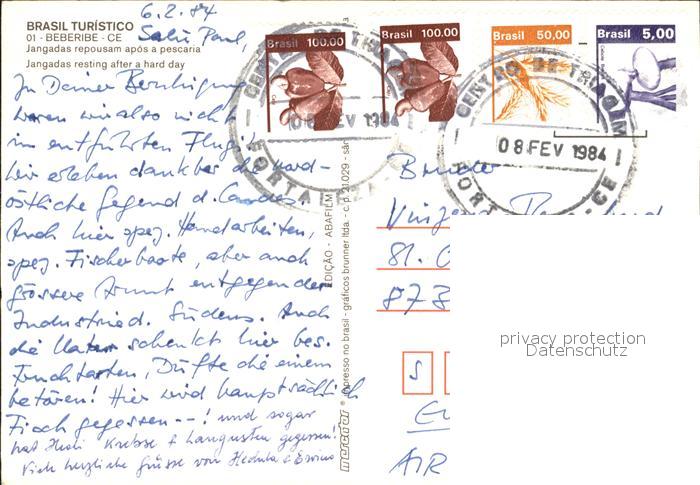 6.2.84
BRASIL TURÍSTICO
01 - BEBERIBE - CE
Jangadas repousam após a pescaria
Jangadas resting after a hard day
Salü Paul,
Zu Deiner Beruhigung
waren wir also nicht
im entführten Flugz.
Wir erleben dankbar die nord-
östliche Gegend d. Landes.
Auch hier spez. Handarbeiten,
spez. Fischerboote, aber auch
grössere Armut entgegen der
Industried. Südens. Auch
die Natur schenkt hier bes.
Fruchtarten, Düfte die einem
betören! Hier wird hauptsächlich
Fisch gegessen --! und sogar
hat Hedi Krebse & Langusten gegessen!
Viele herzliche Grüsse von & Erwin
EDIÇÃO - ABAFILM
impresso no brasil - gráficos brunner ltda. - c. p. 21.029 - são
mercator
Brasil 100,00
Brasil 100,00
Brasil 50,00
Brasil 5,00
CENTRO DE TRIAGEM
08 FEV 1984
FORTALEZA
CENTRO DE TRIAGEM
08 FEV 1984
FORT - CE
Bruder
Vinzenz
81.
873
S
AIR
privacy protection
Datenschutz